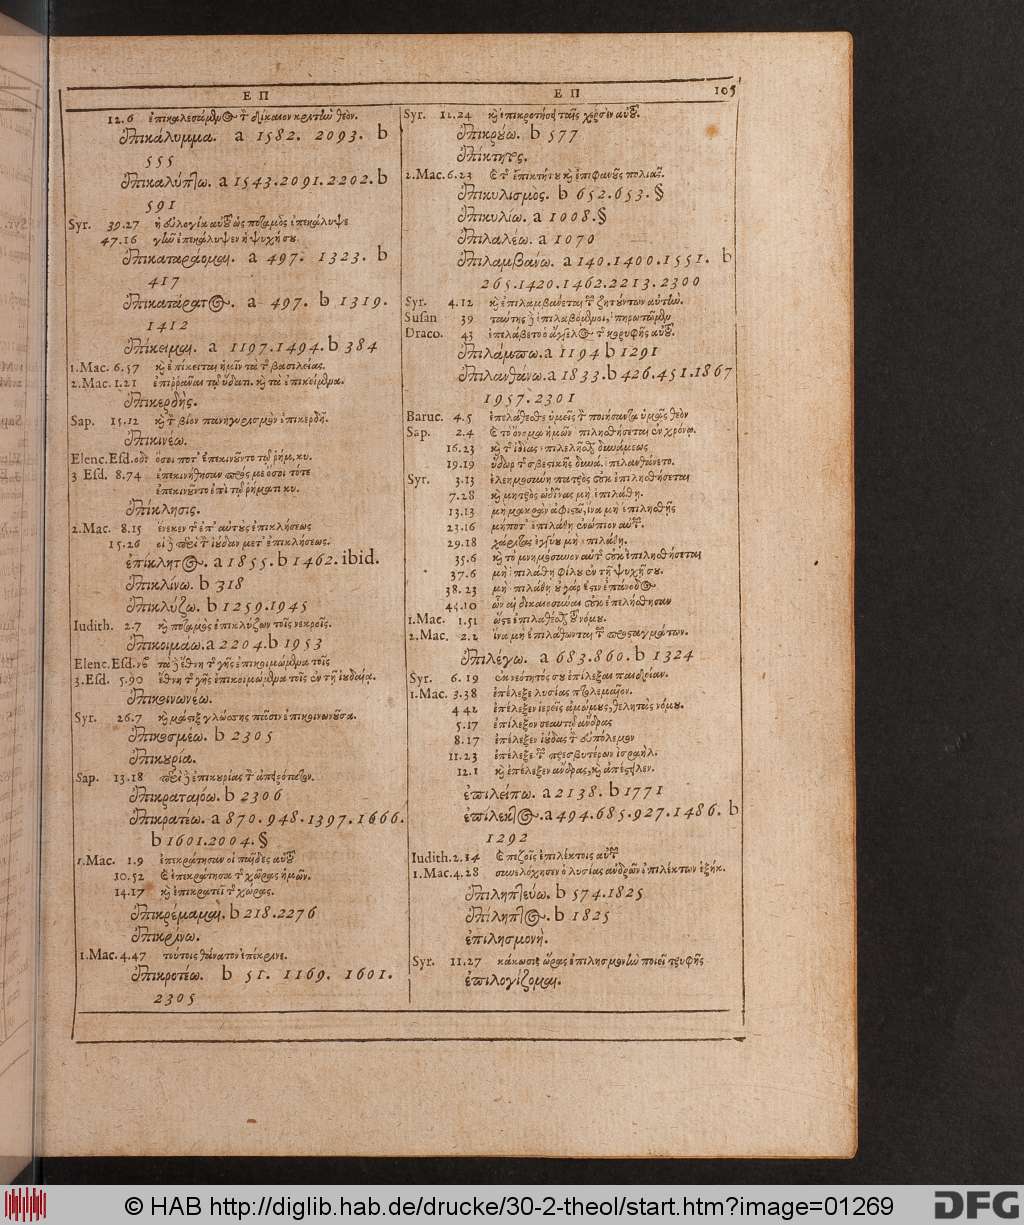 Ε Π
12.6 ἐπικαλεσάμενος τὸν δίκαιον κριτὴν θεόν.
ἐπικάλυμμα. a 1582. 2093. b
555
ἐπικαλύπτω. a 1543.2091.2202.b
591
Syr. 39.27 ἡ εὐλογία αὐτοῦ ὡς ποταμὸς ἐπεκάλυψε
47.16 γῆν ἐπεκάλυψεν ἡ ψυχή σου
ἐπικαταράομαι. a 497. 1323. b
417
ἐπικατάρατος. a 497. b 1319.
1412
ἐπίκειμαι. a 1197.1494.b 384
1.Mac. 6.57 καὶ ἐπίκειται ἡμῖν τὰ τῆς βασιλείας.
2.Mac. 1.21 ἐπιρράναι τῷ ὕδατι καὶ τὰ ἐπικείμενα.
ἐπικερδής.
Sap. 15.12 καὶ τὸν βίον πανηγυρισμὸν ἐπικερδῆ.
ἐπικινέω.
Elenc.Esd. ὅσοι ποτ' ἐπεκινοῦντο τῷ ῥήμ. κυ.
3 Esd. 8.74 ἐπεκινήθησαν πρός με ὅσοι τότε
ἐπεκινοῦντο ἐπὶ τῷ ῥήματι κυ.
ἐπίκλησις.
2.Mac. 8.15 ἕνεκεν τῆς ἐπ' αὐτοὺς ἐπικλήσεως
15.26 οἱ δὲ περὶ τὸν ἰούδαν μετ' ἐπικλήσεως.
ἐπίκλητος. a 1855. b 1462. ibid.
ἐπικλίνω. b 318
ἐπικλύζω. b 1259.1945
Iudith. 2.7 καὶ ποταμὸς ἐπικλύζων τοῖς νεκροῖς.
ἐπικοιμάω. a 2204. b 1953
Elenc.Esd. τὰ δὲ ἔθνη τῆς γῆς ἐπικοιμώμενα τοῖς
3.Esd. 5.90 ἔθνη τῆς γῆς ἐπικοιμώμενα τοῖς ἐν τῇ ἰουδαίᾳ.
ἐπικοινωνέω.
Syr. 26.7 καὶ μάστιξ γλώσσης πᾶσιν ἐπικοινωνοῦσα.
ἐπικοσμέω. b 2305
ἐπικουρία.
Sap. 13.18 περὶ δὲ ἐπικουρίας τὸ ἀπειρότατον.
ἐπικραταιόω. b 2306
ἐπικρατέω. a 870.948.1397.1666.
b 1601.2004.§
1.Mac. 1.9 ἐπεκράτησαν οἱ παῖδες αὐτοῦ
10.52 καὶ ἐπεκράτησα τῆς χώρας ἡμῶν.
14.17 καὶ ἐπικρατεῖ τῆς χώρας.
ἐπικρέμαμαι. b 218.2276
ἐπικρίνω.
1.Mac. 4.47 τούτοις θάνατον ἐπέκρινε.
ἐπικροτέω. b 51. 1169. 1601.
2305
Ε Π 105
Syr. 12.24 καὶ ἐπικροτήσει ταῖς χερσὶν αὐτοῦ.
ἐπικρούω. b 577
ἐπίκτητος.
2.Mac. 6.23 καὶ τῆς ἐπικτήτου καὶ ἐπιφανοῦς πολιᾶς.
ἐπικυλισμὸς. b 652.653.§
ἐπικυλίω. a 1008.§
ἐπιλαλέω. a 1070
ἐπιλαμβάνω. a 140.1400.1551. b
265.1420.1462.2213.2300
Syr. 4.12 καὶ ἐπιλαμβάνεται τῶν ζητούντων αὐτήν.
Susan 39 ταύτης δὲ ἐπιλαβόμενοι, ἐπηρωτῶμεν
Draco. 43 ἐπελάβετο ὁ ἄγγελος τῆς κορυφῆς αὐτοῦ.
ἐπιλάμπω. a 1194 b 1291
ἐπιλανθάνω. a 1833. b 426.451.1867
1957.2301
Baruc. 4.5 ἐπελάθεσθε ὑμεῖς τὸν ποιήσαντα ὑμᾶς θεὸν
Sap. 2.4 καὶ τὸ ὄνομα ἡμῶν ἐπιλησθήσεται ἐν χρόνῳ.
16.23 καὶ τῆς ἰδίας ἐπιλελῆσθαι δυνάμεως
19.19 ὕδωρ τῆς σβεστικῆς δυνά. ἐπελανθάνετο.
Syr. 3.13 ἐλεημοσύνη πατρὸς οὐκ ἐπιλησθήσεται
7.28 καὶ μητρὸς ὠδῖνας μὴ ἐπιλάθῃ.
13.13 μὴ μακρὰν ἀφιστῶ, ἵνα μὴ ἐπιλησθῇς
23.16 μήποτ' ἐπιλάθῃ ἐνώπιον αὐτῶν.
29.18 χάριτας ἐγγύου μὴ ἐπιλάθῃ.
35.6 καὶ τὸ μνημόσυνον αὐτῆς οὐκ ἐπιλησθήσεται
37.6 μὴ ἐπιλάθῃ φίλου ἐν τῇ ψυχῇ σου.
38.23 μὴ ἐπιλάθῃ οὐ γάρ ἐστιν ἐπάνοδος
44.10 ὧν αἱ δικαιοσύναι οὐκ ἐπελήσθησαν
1.Mac. 1.51 ὥστε ἐπιλαθέσθαι τοῦ νόμου.
2.Mac. 2.2 ἵνα μὴ ἐπιλάθωνται τῶν προσταγμάτων.
ἐπιλέγω. a 683.860. b 1324
Syr. 6.19 ἐκ νεότητός σου ἐπίλεξαι παιδείαν.
1.Mac. 3.38 ἐπέλεξε λυσίας πτολεμαῖον.
4 42 ἐπέλεξεν ἱερεῖς ἀμώμους, θελητὰς νόμου.
5.17 ἐπίλεξον σεαυτῷ ἄνδρας
8.17 ἐπέλεξεν ἰούδας τὸν εὐπόλεμον
11.23 ἐπέλεξε τῶν πρεσβυτέρων ἰσραήλ.
12.1 καὶ ἐπέλεξεν ἄνδρας, καὶ ἀπέστειλεν.
ἐπιλείπω. a 2138. b 1771
ἐπίλεκτος. a 494.685.927.1486. b
1292
Iudith. 2.14 καὶ πεζοῖς ἐπιλέκτοις αὐτῶν
1.Mac. 4.28 συνελόχησεν ὁ λυσίας ἀνδρῶν ἐπιλέκτων ἑξήκ.
ἐπιληπτεύω. b 574.1825
ἐπίληπτος. b 1825
ἐπιλησμονή.
Syr. 11.27 κάκωσις ὥρας ἐπιλησμονὴν ποιεῖ τρυφῆς
ἐπιλογίζομαι.
© HAB http://diglib.hab.de/drucke/30-2-theol/start.htm?image=01269
DFG